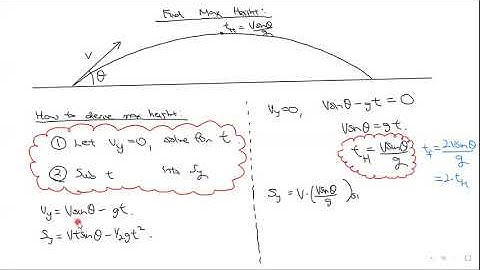 Find Max Height:
t_H = Vsinθ/g
V
θ
How to derive max height.
① Let Vy=0, solve for t
② Sub t into Sy
Vy = Vsinθ - gt.
Sy = Vtsinθ - 1/2gt².
Vy=0, Vsinθ - gt = 0
Vsinθ = gt.
t_H = Vsinθ/g
t_f = 2Vsinθ/g
= 2·t_H
Sy = V·(Vsinθ/g)si